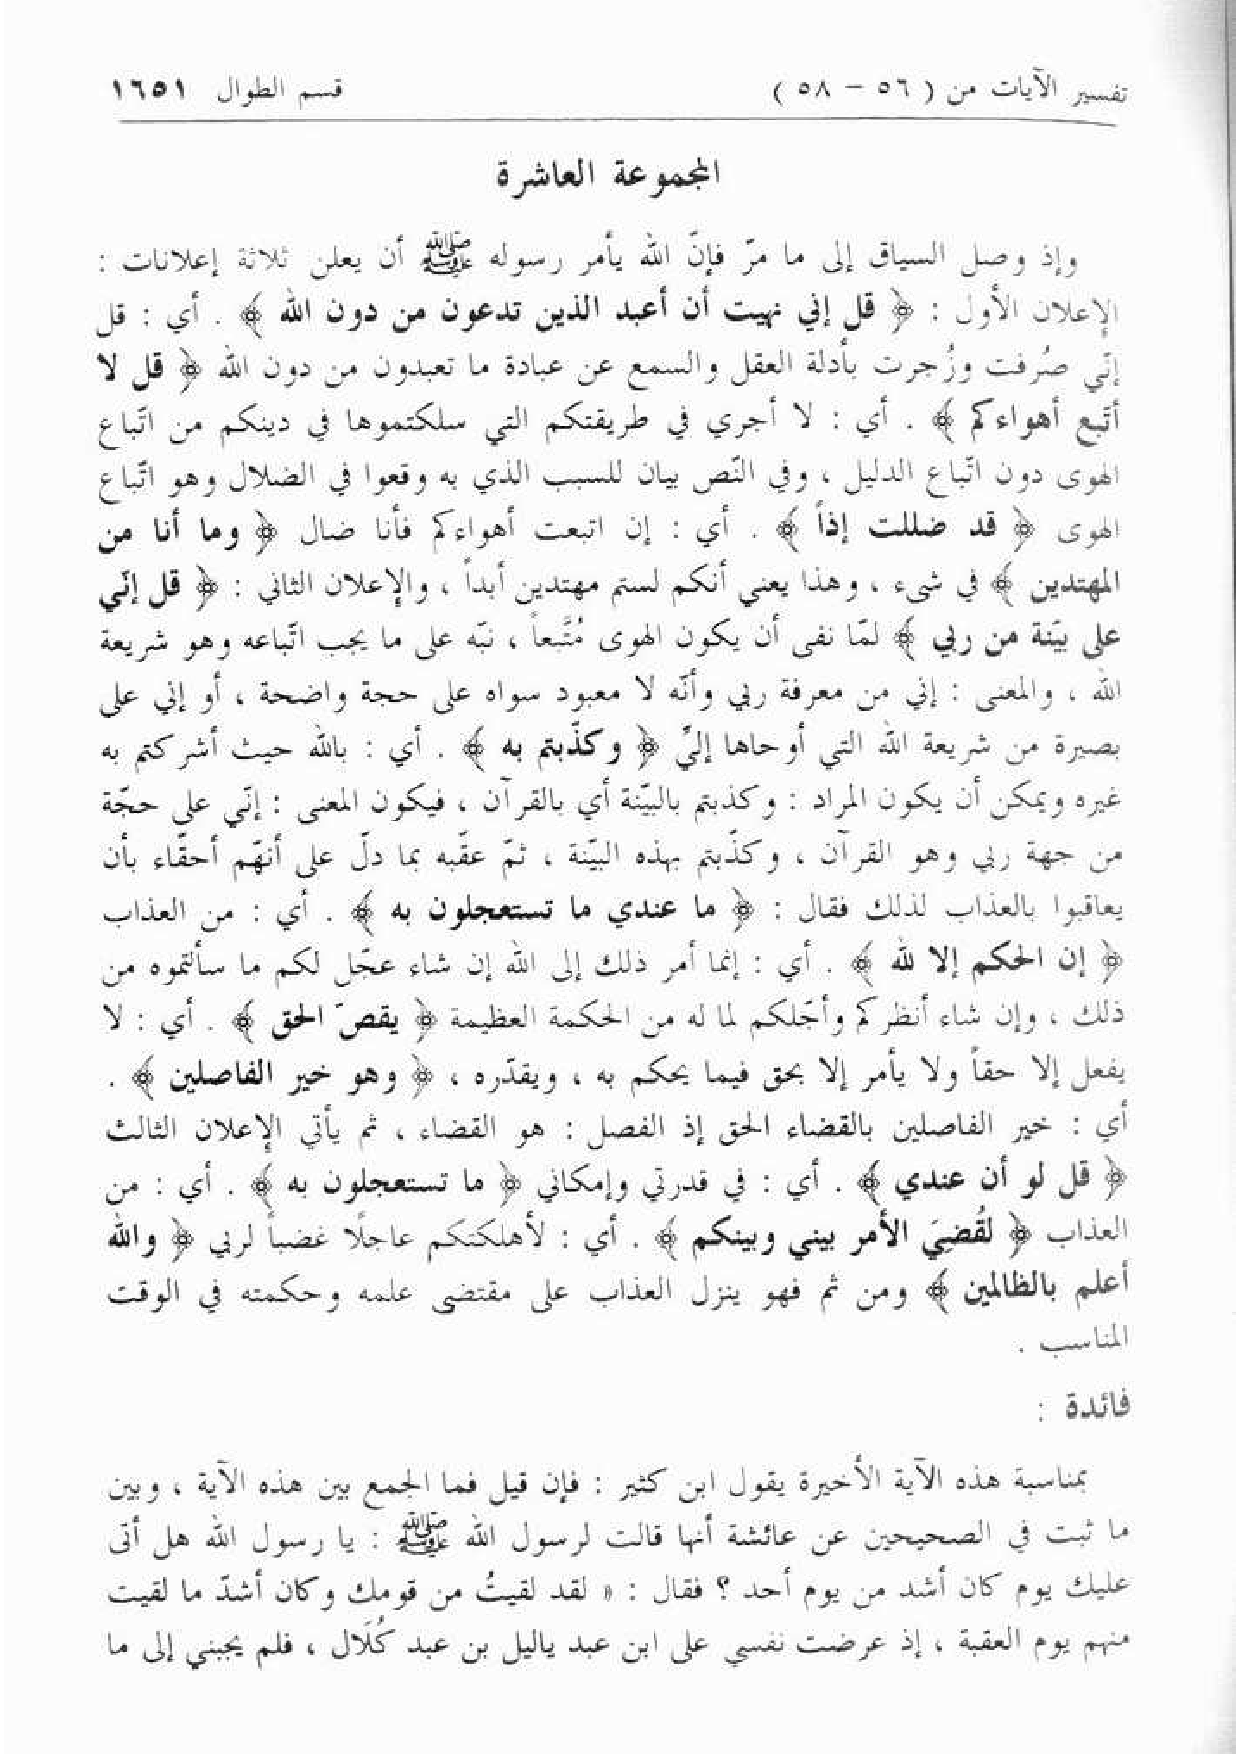 تفسير الآيات من ( ٥٦ – ٥٨ )
قسم الطوال ١٦٥١
المجموعة العاشرة
وإذ وصل السياق إلى ما مرّ فإنّ الله يأمر رسوله ﷺ أن يعلن ثلاثة إعلانات :
الإعلان الأول : ﴿ قل إني نهيت أن أعبد الذين تدعون من دون الله ﴾ . أي : قل
إنّي صُرفت وزُجرت بأدلة العقل والسمع عن عبادة ما تعبدون من دون الله ﴿ قل لا
أتّبع أهواءكم ﴾ . أي : لا أجري في طريقتكم التي سلكتموها في دينكم من اتّباع
الهوى دون اتّباع الدليل ، وفي النّص بيان للسبب الذي به وقعوا في الضلال وهو اتّباع
الهوى ﴿ قد ضللت إذاً ﴾ . أي : إن اتبعت أهواءكم فأنا ضال ﴿ وما أنا من
المهتدين ﴾ في شيء ، وهذا يعني أنكم لستم مهتدين أبداً ، والإعلان الثاني : ﴿ قل إنّي
على بيّنة من ربي ﴾ لمّا نفى أن يكون الهوى مُتَّبعاً ، نبّه على ما يجب اتّباعه وهو شريعة
الله ، والمعنى : إني من معرفة ربي وأنّه لا معبود سواه على حجة واضحة ، أو إني على
بصيرة من شريعة الله التي أوحاها إليّ ﴿ وكذّبتم به ﴾ . أي : بالله حيث أشركتم به
غيره ويمكن أن يكون المراد : وكذبتم بالبيّنة أي بالقرآن ، فيكون المعنى : إنّي على حجّة
من جهة ربي وهو القرآن ، وكذّبتم بهذه البيّنة ، ثمّ عقّبه بما دلّ على أنهّم أحقّاء بأن
يعاقبوا بالعذاب لذلك فقال : ﴿ ما عندي ما تستعجلون به ﴾ . أي : من العذاب
﴿ إن الحكم إلا لله ﴾ . أي : إنما أمر ذلك إلى الله إن شاء عجّل لكم ما سألتموه من
ذلك ، وإن شاء أنظركم وأجّلكم لما له من الحكمة العظيمة ﴿ يقصّ الحق ﴾ . أي : لا
يفعل إلا حقاً ولا يأمر إلا بحق فيما يحكم به ، ويقدّره ، ﴿ وهو خير الفاصلين ﴾ .
أي : خير الفاصلين بالقضاء الحق إذ الفصل : هو القضاء ، ثم يأتي الإعلان الثالث
﴿ قل لو أن عندي ﴾ . أي : في قدرتي وإمكاني ﴿ ما تستعجلون به ﴾ . أي : من
العذاب ﴿ لقُضيَ الأمر بيني وبينكم ﴾ . أي : لأهلكتكم عاجلًا غضباً لربي ﴿ والله
أعلم بالظالمين ﴾ ومن ثم فهو ينزل العذاب على مقتضى علمه وحكمته في الوقت
المناسب .
فائدة :
بمناسبة هذه الآية الأخيرة يقول ابن كثير : فإن قيل فما الجمع بين هذه الآية ، وبين
ما ثبت في الصحيحين عن عائشة أنها قالت لرسول الله ﷺ : يا رسول الله هل أتى
عليك يوم كان أشد من يوم أحد ؟ فقال : « لقد لقيتُ من قومك وكان أشدّ ما لقيت
منهم يوم العقبة ، إذ عرضت نفسي على ابن عبد ياليل بن عبد كُلَال ، فلم يجبني إلى ما